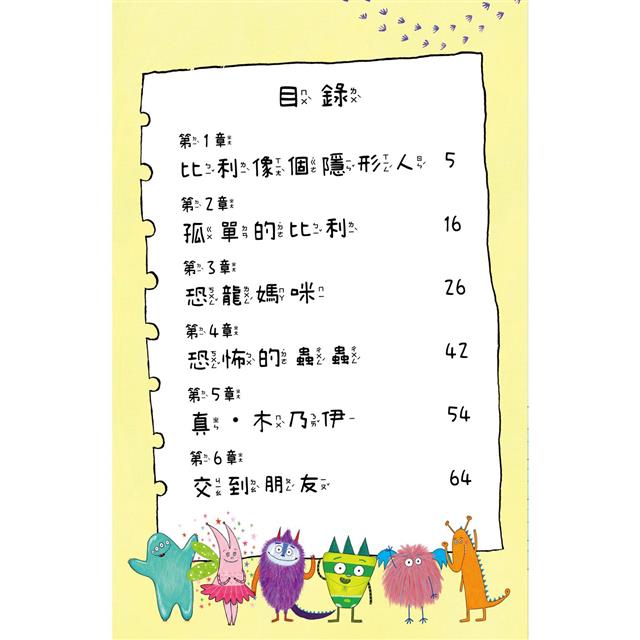 目錄
第1章
比利像個隱形人 5
第2章
孤單的比利 16
第3章
恐龍媽咪 26
第4章
恐怖的蟲蟲 42
第5章
真·木乃伊 54
第6章
交到朋友 64